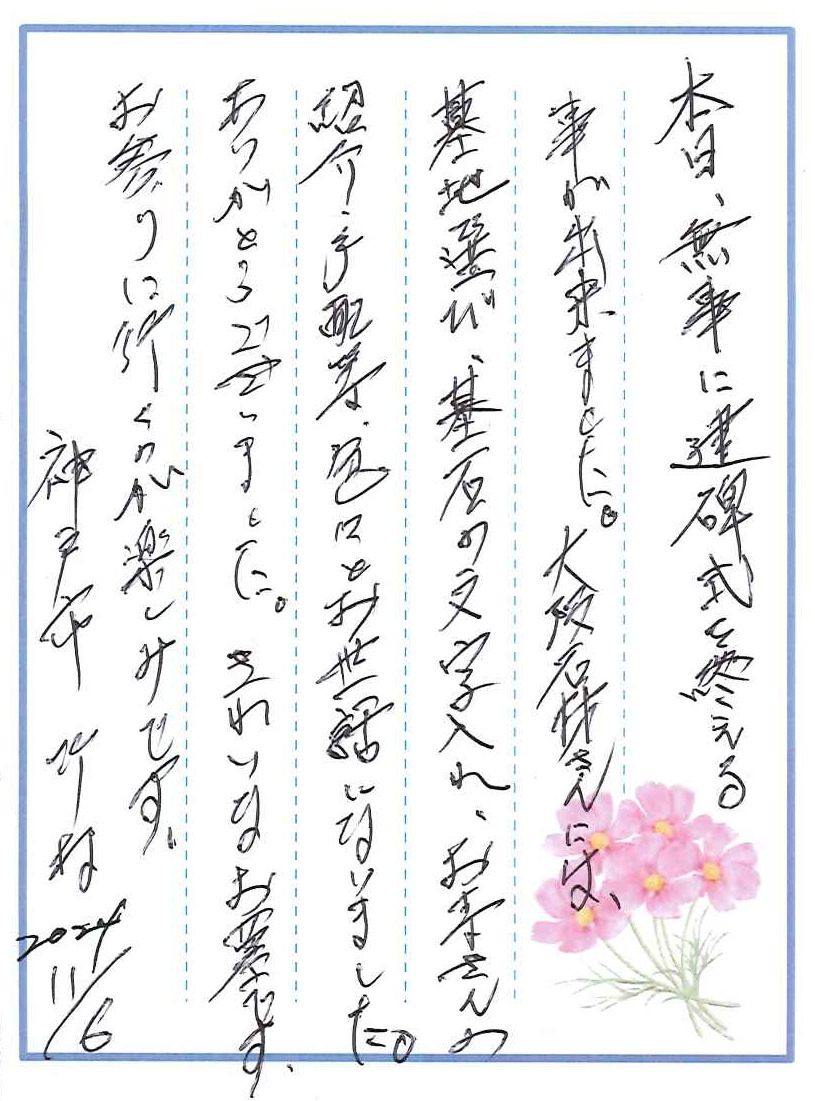 本日、無事に建碑式を終える
事が出来ました。大阪石材さんには、
墓地選び、墓石の文字入れ、お寺さんの
紹介・手配等、色々とお世話にないました。
ありがとうございました。きれいなお墓です。
お参りに行くのが楽しみです。
神戸市 竹村
2024
11/6